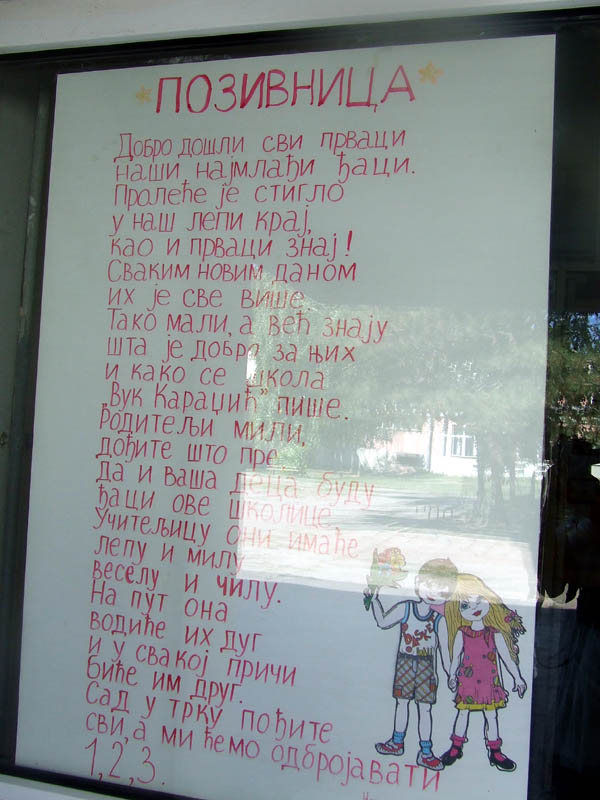 ПОЗИВНИЦА
Добро дошли сви прваци
наши најмлађи ђаци.
Пролеће је стигло
у наш лепи крај,
као и прваци знај!
Сваким новим даном
их је све више.
Тако мали, а већ знају
шта је добро за њих
и како се школа
„Вук Караџић“ пише.
Родитељи мили,
дођите што пре,
да и ваша деца буду
ђаци ове школице.
Учитељицу они имаће
лепу и милу
веселу и чилу.
На пут она
водиће их дуг
и у свакој причи
биће им друг.
Сад у трку пођите
сви, а ми ћемо одбројавати
1,2,3.